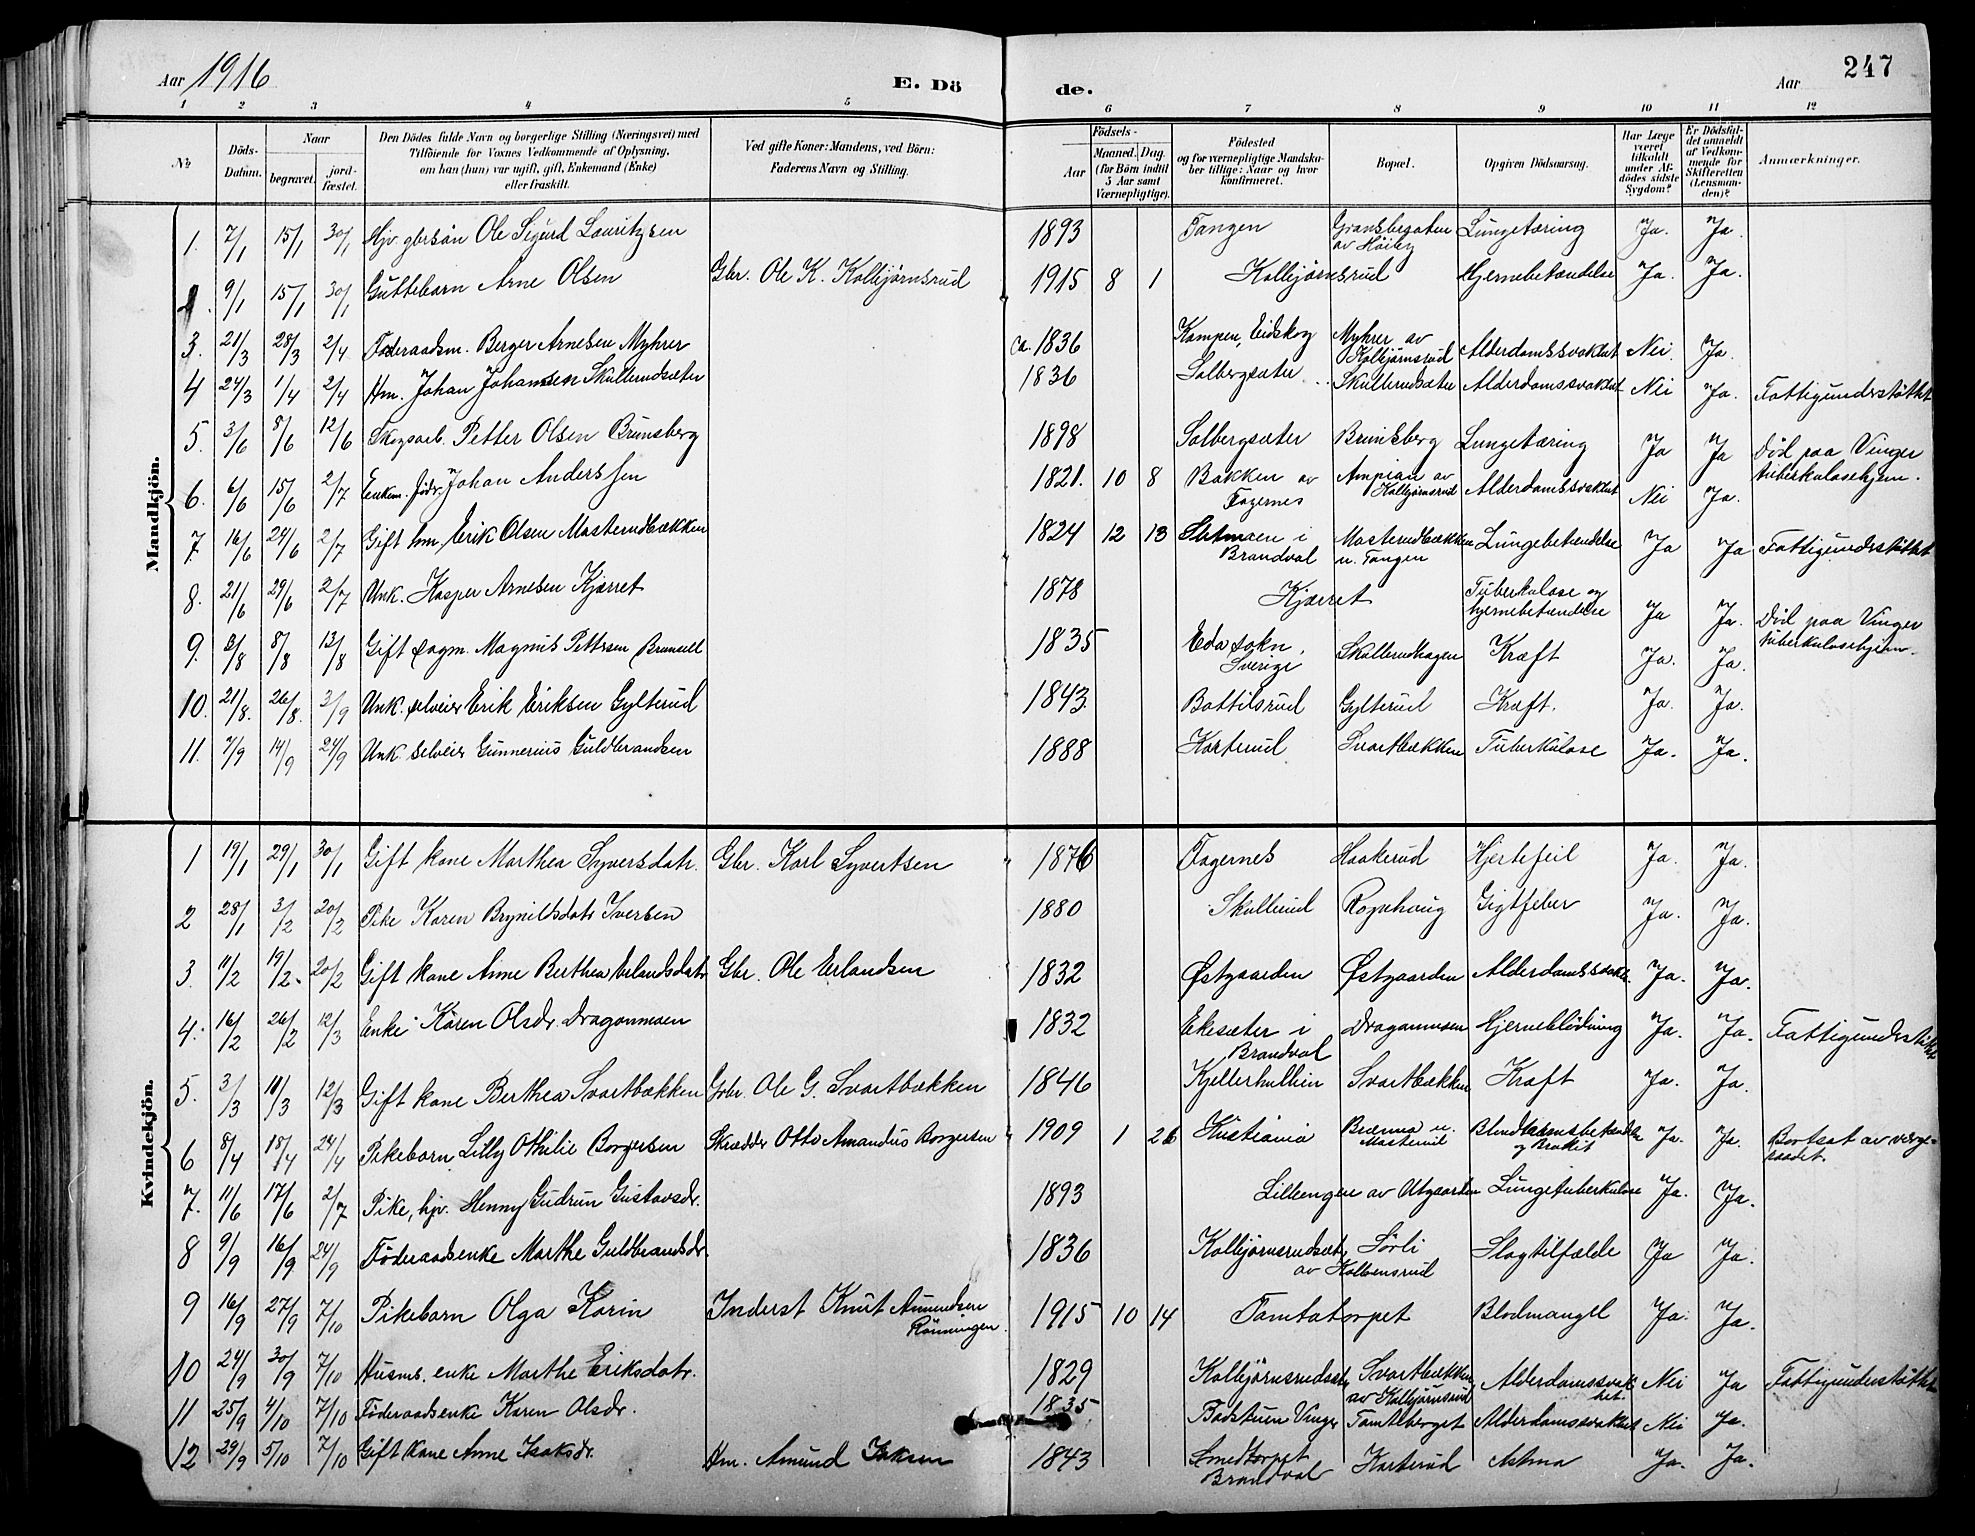 Aar 1916 E. Dö de. Aar 247
1 2 3 4 5 6 7 8 9 10 11 12
No Döds-Datum. Naar begravet. jordfæstet. Den Dödes fulde Navn og borgerlige Stilling (Næringsvei) med Tilföiende for Voxnes Vedkommende af Oplysning, om han (hun) var ugift, gift, Enkemand (Enke) eller fraskilt. Ved gifte Koner: Mandens, ved Börn: Faderens Navn og Stilling. Födsels- Aar Maaned. Dag. (for Börn indtil 5 Aar samt Værnepligtige). Födested og for værnepligtige Mandskaber tillige: Naar og hvor konfirmeret. Bopæl. Opgiven Dödsaarsag. Har Læge været tilkaldt under Afdödes sidste Sygdom? Er Dödsfaldet anmeldt af Vedkommende for Skifteretten (Lensmanden)? Anmærkninger.
Mandkjön.
1. 7/1 15/1 30/1 Hjv. gbrsön Ole Sigurd Lauritzsen 1893 Tangen Gransbergsten av Höiby Lungetæring Ja. Ja.
9/1 15/1 30/1 Guttebarn Arne Olsen Gbr. Ole K. Kolbjørnsrud 1915 8 1 Kolbjørnsrud Hjernebetændelse Ja. Ja.
3. 21/3 28/3 2/4 Föderaadsm. Berger Arnesen Myhrer ca. 1836 Kampen, Eidskog Myhrer av Kolbjørnsrud Alderdomssvakhet Nei Ja.
4 24/3 1/4 2/4 Hm. Johan Johansen Skullerudsæter 1836 Solbergsæter Skullerudsæter Alderdomssvakhet Nei Ja. Fattigunderstöttet
5. 3/6 8/6 12/6 Skogsarb. Petter Olsen Brunsberg 1898 Solbergsæter Brunsberg Lungetæring Ja Ja Död paa Vinger tuberkulosehjem.
6. 6/6 15/6 2/7 Enkem. födr. Johan Anderssen 1821. 10 8 Bakken av Fagernes Ampian av Kolbjörnsrud Alderdomssvakhet Nei Ja.
7. 16/6 24/6 2/7 Gift hm. Erik Olsen Masterudbækken 1824 12 13 Sletmoen i Brandval Masterudbækken u. Tangen Lungebetændelse Ja Ja Fattigunderstöttet
8. 21/6 29/6 2/7 Unk. Kasper Arnesen Kjærret 1878 Kjærret Tuberkulose og hjernebetændelse Ja Ja. Död paa Vinger tuberkulosehjem.
9. 3/8 8/8 13/8 Gift dagm. Magnus Pettersen Brunvell 1835 Eda sokn, Sverige Skullerudhagen Kræft Ja. Ja.
10. 21/8. 26/8. 3/9 Unk. selveier Erik Eriksen Gylterud 1843. Bottilsrud Gylterud Kræft. Ja. Ja.
11. 7/9 14/9 24/9 Unk. selveier Gunnerius Guldbrandsen 1888 Karterud Svartbækken Tuberkulose Ja. Ja.
Kvindekjön.
1 19/1 29/1 30/1 Gift kone Marthea Syversdatr. Gbr. Karl Syvertsen 1876 Fagernes Haakerud Hjertefeil Ja. Ja.
2 28/1 3/2 20/2 Pike Karen Brynildsdatr Iversen 1880 Skullerud Rognhaug Gigtfeber Ja. Ja.
3. 11/2 19/2. 20/2 Gift kone Anne Berthea Erlandsdatr Gbr. Ole Erlandsen 1832 Østgaarden Østgaarden Alderdomssvakh. Ja. Ja.
4. 16/2 26/2 12/3 Enke Karen Olsdr. Dragonmoen 1832 Ekesæter i Brandval Dragonmoen Hjerneblödning Ja. Ja. Fattigunderstöttet
5. 3/3 11/3 12/3 Gift kone Berthea Svartbækken Gbr. Ole G. Svartbækken 1846 Kjellerhullin Svartbækken Kræft Ja. Ja.
6 8/4 18/4 24/4 Pikebarn Lilly Othilie Borgersen Skrædder Otto Amandus Borgersen 1909 1 26 Kristiania u. Masterud Ja. Ja. Bortsat av vergeraadet.
7. 11/6 17/6 2/7 Pike, hjv. Henny Gudrun Gustavsdr. 1893 Lillengen av Utgaarden Lungetuberkulose Ja. Ja.
8 9/9 16/9 24/9 Föderaadsenke Marthe Guldbrandsdr. 1836 Kolbjørnsrudsæt. Sørli av Kolbensrud Slagtilfælde Ja Ja.
9 16/9 27/9 7/10 Pikebarn Olga Karin Inderst Knut Amundsen Rönningen. 1915 10 14 Tomtatorpet Blodmangel Ja. Ja.
10 24/9 30/9 7/10 Husms. enke Marthe Eriksdatr. 1829 Kolbjørnsrudsæt. Svartbækken av Kolbjörnsrud Alderdomssvakhet. Nei Ja Fattigunderstöttet
11 25/9 4/10 7/10 Föderaadsenke Karen Olsdr. 1835 Badstuen Vinger Tomtberget Alderdomssvakhet Nei Ja.
12 29/9 5/10 7/10 Gift kone Anne Isaksdr. Hm. Amund Isaksen 1843 Smedtorpet Brandval Karterud Astma Ja. Ja.